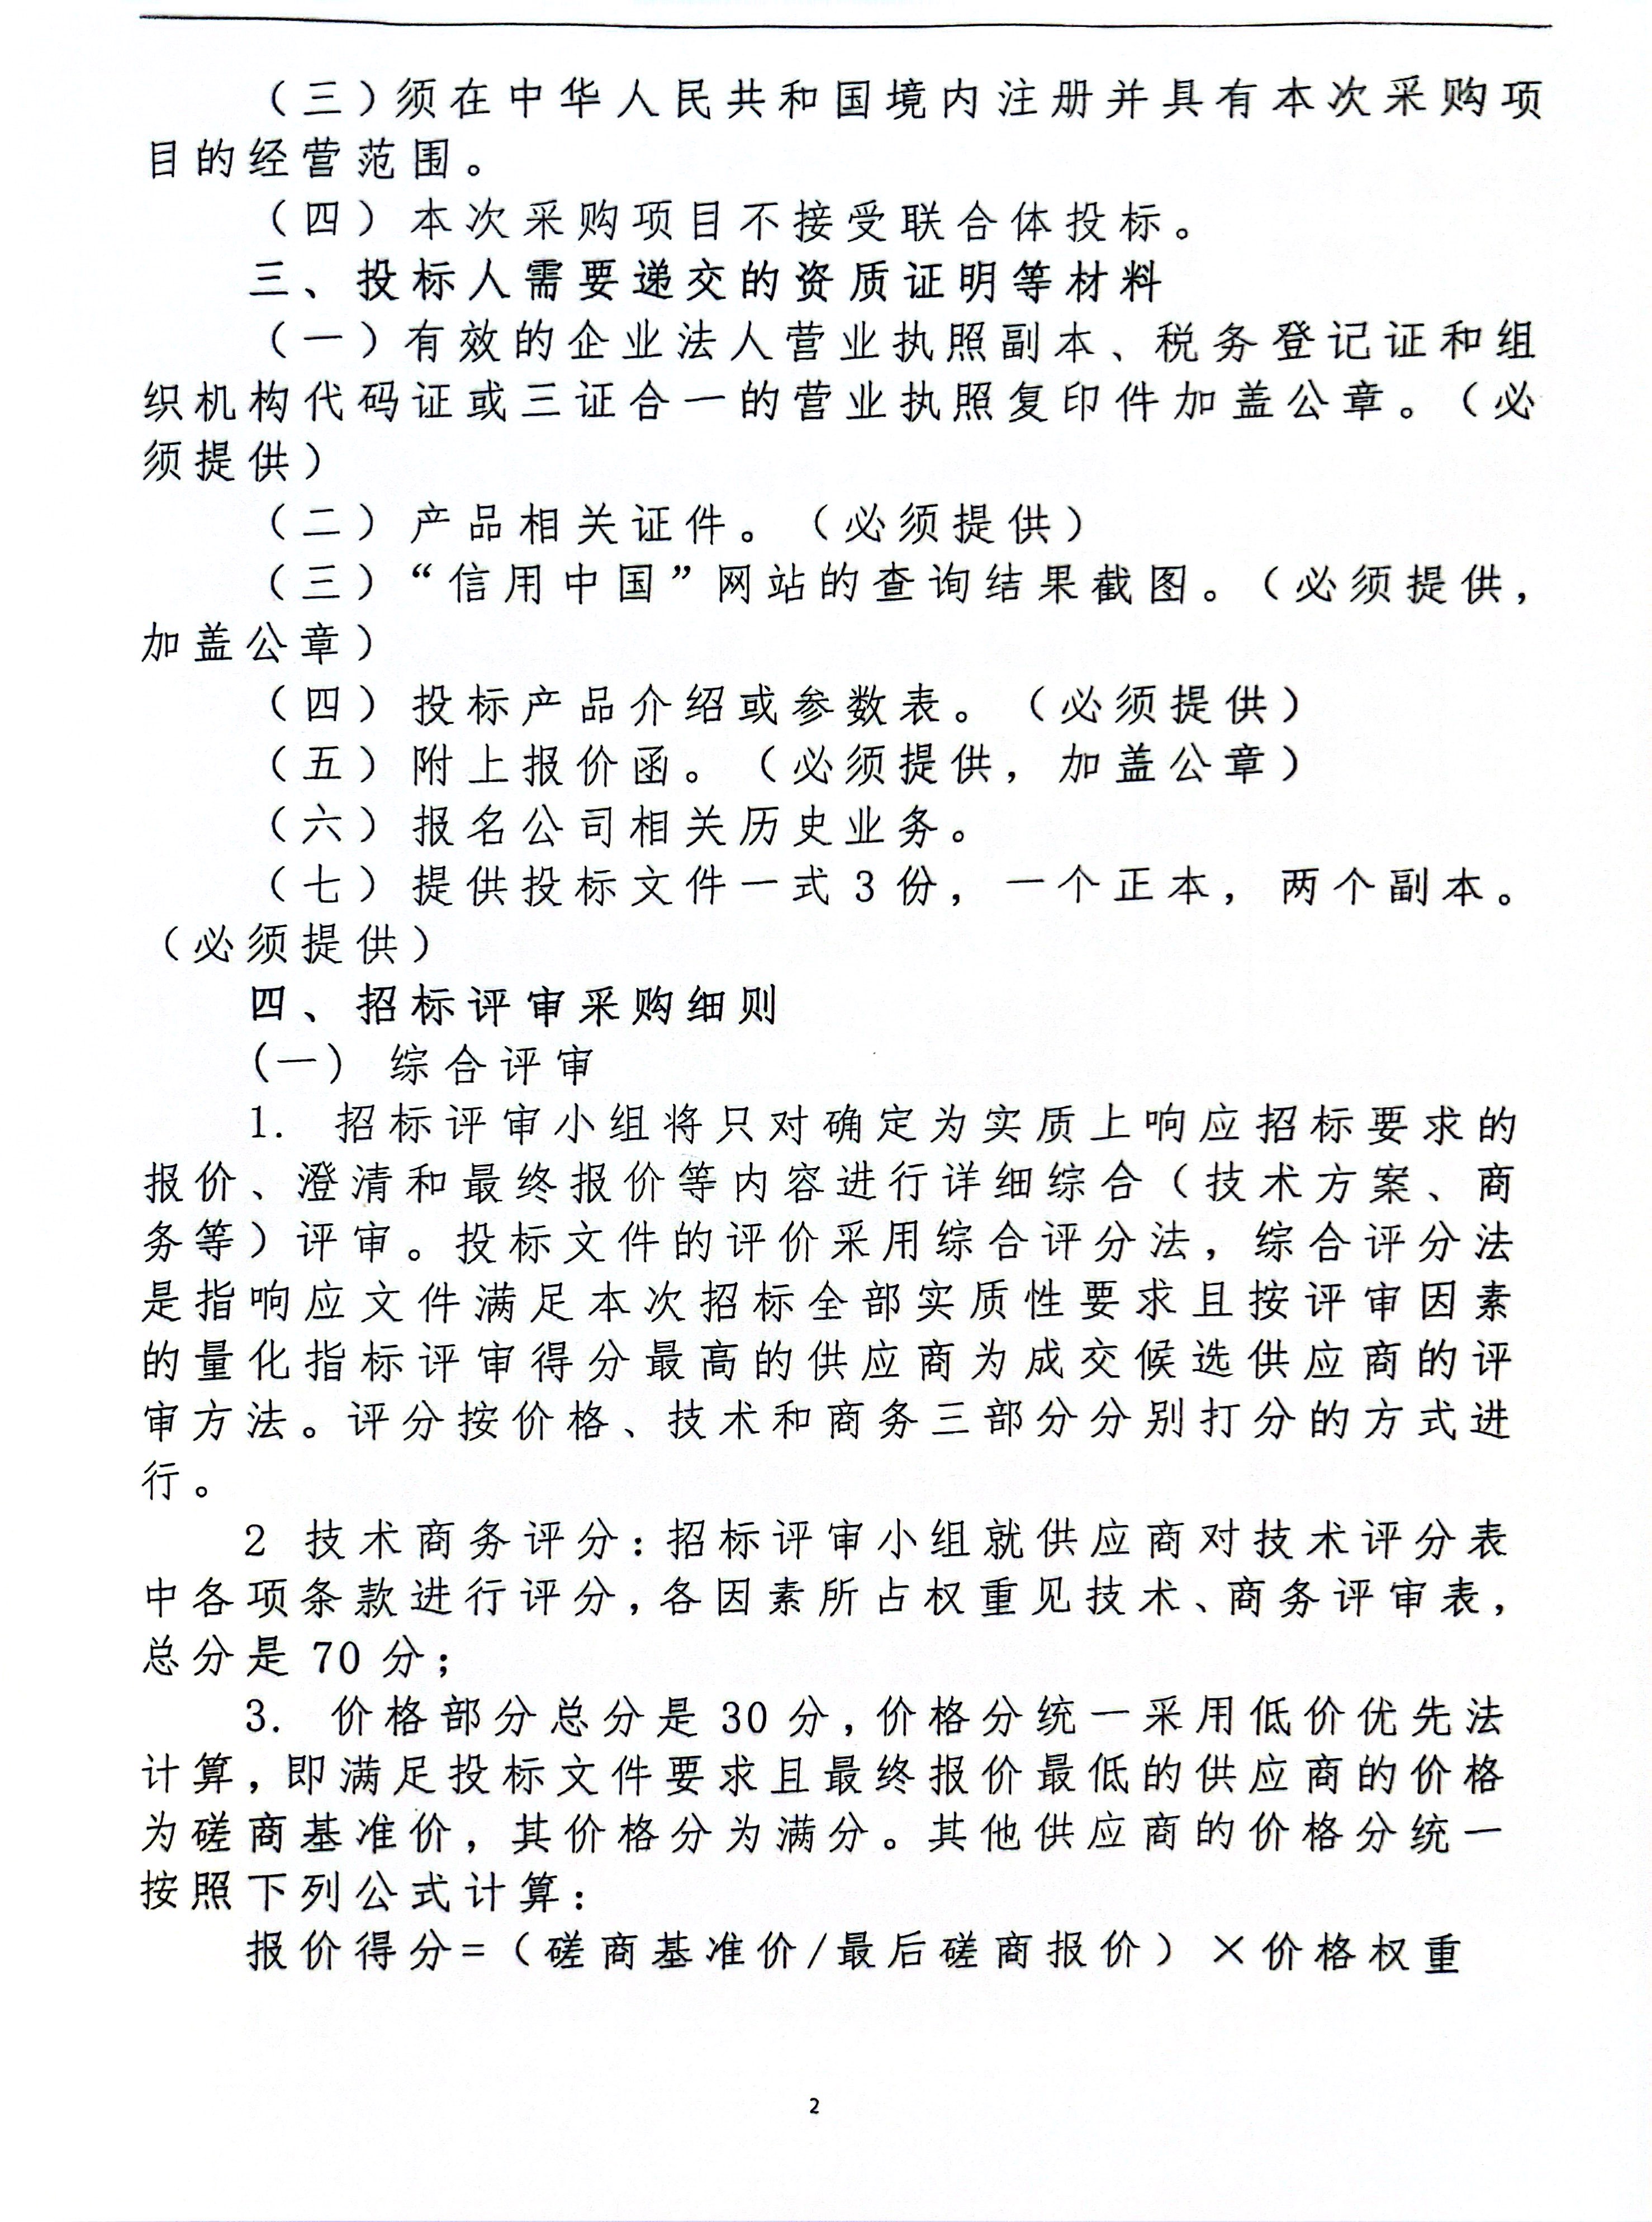 （三）须在中华人民共和国境内注册并具有本次采购项
目的经营范围。
（四）本次采购项目不接受联合体投标。
三、投标人需要递交的资质证明等材料
（一）有效的企业法人营业执照副本、税务登记证和组
织机构代码证或三证合一的营业执照复印件加盖公章。（必
须提供）
（二）产品相关证件。（必须提供）
（三）“信用中国”网站的查询结果截图。（必须提供，
加盖公章）
（四）投标产品介绍或参数表。（必须提供）
（五）附上报价函。（必须提供，加盖公章）
（六）报名公司相关历史业务。
（七）提供投标文件一式 3 份，一个正本，两个副本。
（必须提供）
四、招标评审采购细则
(一) 综合评审
1. 招标评审小组将只对确定为实质上响应招标要求的
报价、澄清和最终报价等内容进行详细综合（技术方案、商
务等）评审。投标文件的评价采用综合评分法，综合评分法
是指响应文件满足本次招标全部实质性要求且按评审因素
的量化指标评审得分最高的供应商为成交候选供应商的评
审方法。评分按价格、技术和商务三部分分别打分的方式进
行。
2 技术商务评分：招标评审小组就供应商对技术评分表
中各项条款进行评分，各因素所占权重见技术、商务评审表，
总分是 70 分；
3. 价格部分总分是 30 分，价格分统一采用低价优先法
计算，即满足投标文件要求且最终报价最低的供应商的价格
为磋商基准价，其价格分为满分。其他供应商的价格分统一
按照下列公式计算：
报价得分=（磋商基准价/最后磋商报价）×价格权重
2